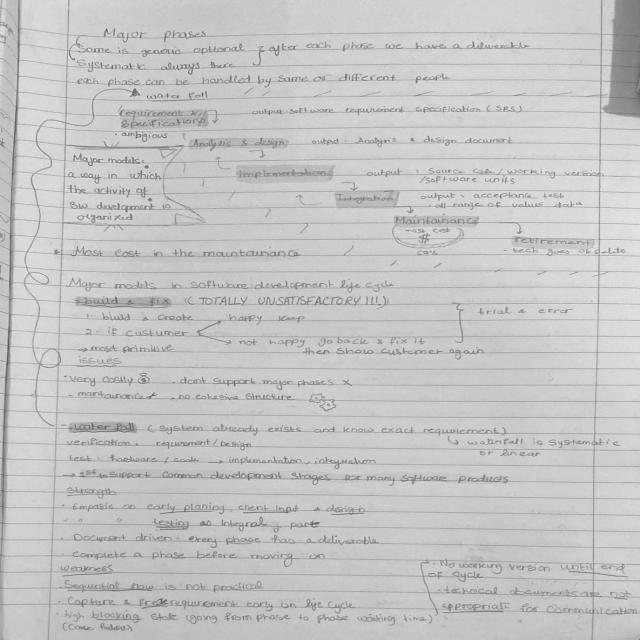 Major phases
Some is generic optional } after each phase we have a deliverable
Systematic always here
each phase can be handled by same or different people
water fall
requirement
specification
output: software requirement specification (SRS)
• ambigious
Analysis & design output: Analysis & design document
Major models:
a way in which
the activity of
SW development is
organized
Implementations output: Source code/working version
/software units
Integration output: acceptance test
- all range of values data
Maintainance
most cost
$
67%
retirement
- tech goes obsolete
* Most cost in the maintainance
Major models in software development life cycle
- build & fix (TOTALLY UNSATISFACTORY!!!)
1- build & create happy keep
2- if custumer
not happy go back & fix it
then show customer again
trial & error
→ most primitive
issues
• very costly $ . dont support major phases x
• maintainance . no cohesive structure
- water fall (system already exists and know exact requirement)
↳ waterfall is systematic
or linear
verification: requirement/Design
test: hardware/code → implementation, integration
→ 1st to support common development stages for many software products
Strength
• Empasis on early planing, client input & design
" " testing as integral part
• Document driven: every phase has a deliverable
• Complete a phase before moving on
weakness
• Sequential flow is not practical
• Capture & requirement early on life cycle
• high blocking state (going from phase to phase waiting time)
• No working version until end
of cycle
• technical documents are not
appropriate for communication